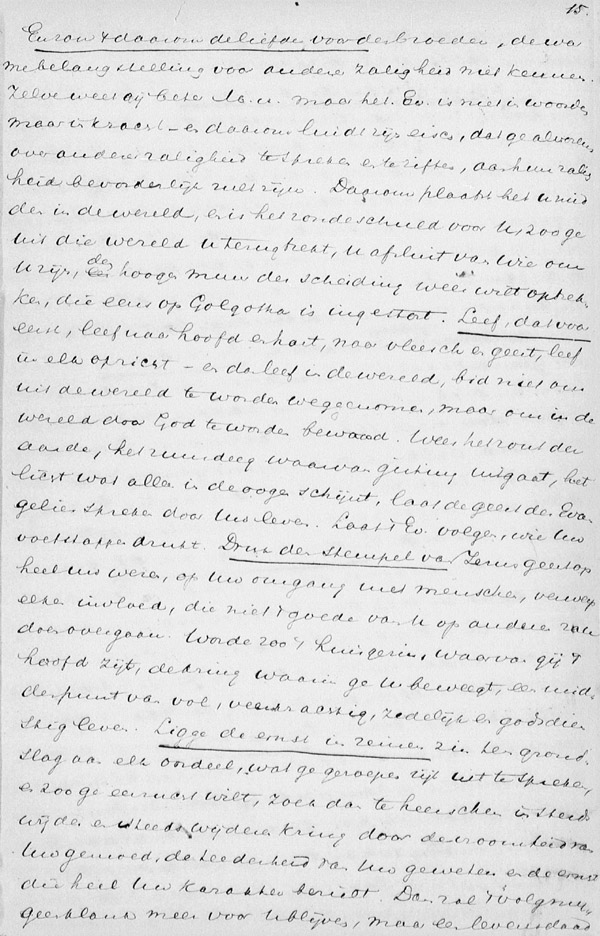 15.
En zou t daarom de liefde voor de broeder, de wa
me belangstelling voor anderer zaligheid niet kennen.
Zelve weet gij beter M. u. maar het Ev. is niet in woorden
maar in kracht – en daarom luidt zijn eisch, dat ge alvorens
over anderer zaligheid te spreken en te ziften, aan hun zalig
heid bevorderlijk zult zijn. Daarom plaatst het u mid
den in de wereld, en is het zonde schuld voor U, zoo ge
uit die wereld U terugtrekt, U afsluit van wie om
U zijn, den hoogen muur der scheiding weer wilt optrek
ken, die eens op Golgotha is ingestort. Leef, dat voor
eerst, leef naar hoofd en hart, naar vleesch en geest, leef
in elk opzicht – en dan leef in de wereld, bid niet om
uit de wereld te worden weggenomen, maar om in de
wereld door God te worden bewaard. Wees het zout der
aarde, het zuurdeeg waarvan gisting uitgaat, het
licht wat allen in de oogen schijnt, laat de geest der Evan
gelien spreken door Uw leven. Laat 't Ev. volgen, wie Uw
voetstappen drukt. Druk den stempel van Jezus geest op
heel Uw wezen, op Uw omgang met menschen, verwerp
elken invloed, die niet 't goede van U op anderen zou
doen overgaan. Worde zoo 't huisgezin, waarvan gij 't
hoofd zijt, de kring waarin ge U beweegt, een mid
delpunt van vol, veerkrachtig, zedelijk en godsdien
stig leven. Ligge de ernst in reinen zin ten grond
slag aan elk oordeel, wat ge geroepen zijt uit te spreken,
en zoo ge eerzucht wilt, zoek dan te heerschen in steeds
wijder en steeds wijderen kring door de vroomheid van
Uw gemoed, de teederheid van Uw geweten en de ernst
die heel Uw karakter beheerscht. Dan zal 't volg
geen klank meer voor U blijven, maar een levensdaad